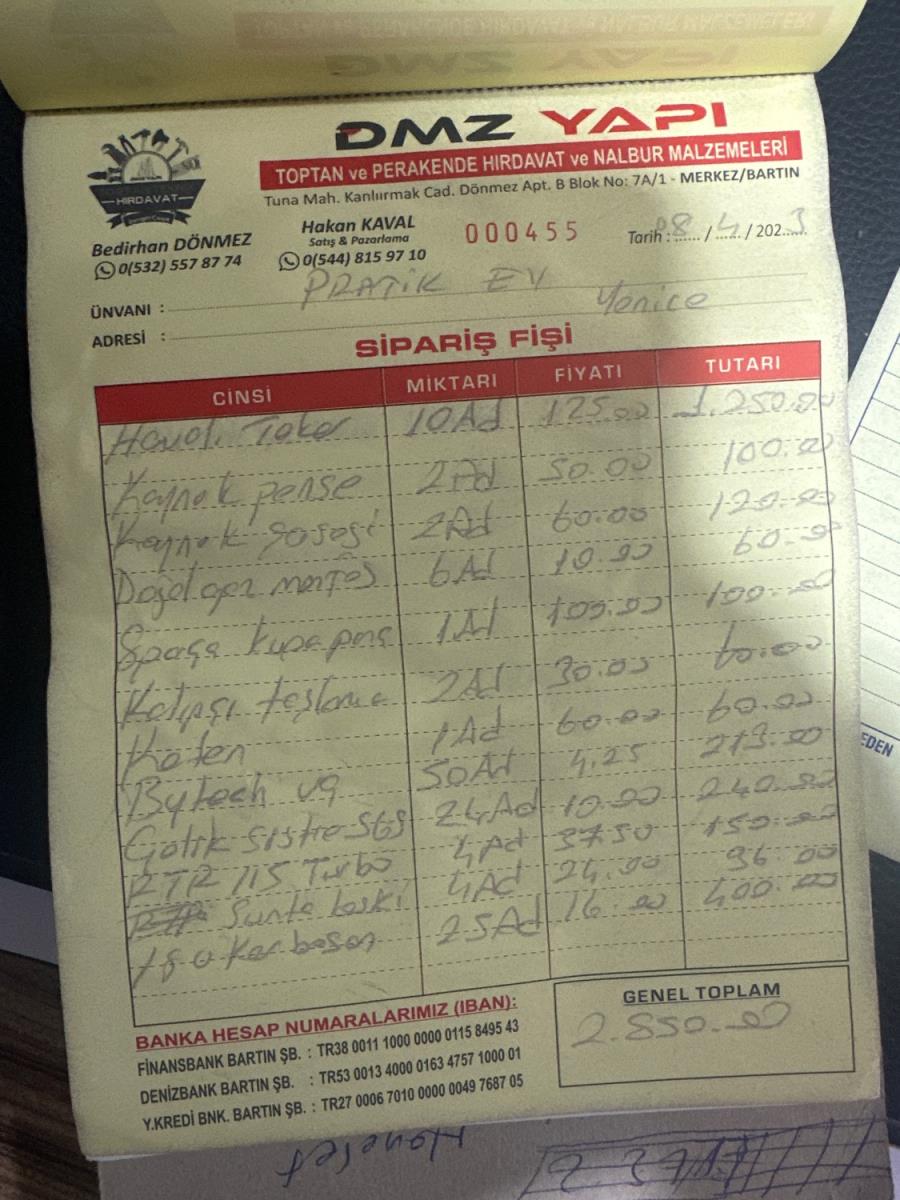 DMZ YAPI
HIRDAVAT
TOPTAN ve PERAKENDE HIRDAVAT ve NALBUR MALZEMELERİ
Tuna Mah. Kanlıırmak Cad. Dönmez Apt. B Blok No: 7A/1 - MERKEZ/BARTIN
Bedirhan DÖNMEZ
0(532) 557 87 74
Hakan KAVAL
Satış & Pazarlama
0(544) 815 97 10
000455
Tarih : 08 / 4 / 2023
ÜNVANI : PRATİK EV
Yenice
ADRESİ :
SİPARİŞ FİŞİ
CİNSİ MİKTARI FİYATI TUTARI
Havalı Teker 10 Ad 125.00 1.250.00
Kaynak pense 2 Ad 50.00 100.00
Kaynak şasesi 2 Ad 60.00 120.00
Doğalgaz 6 Ad 10.00 60.00
1 Ad 100.00 100.00
Kalıpçı taşlama 2 Ad 30.00 60.00
Keten 1 Ad 60.00 60.00
Bytech 50 Ad 4.25 213.00
24 Ad 10.00 240.00
RTR 115 Turbo 4 Ad 37.50 150.00
Sunta baskı 4 Ad 24.00 96.00
25 Ad 16.00 400.00
GENEL TOPLAM
2.850.00
BANKA HESAP NUMARALARIMIZ (IBAN):
FİNANSBANK BARTIN ŞB. : TR38 0011 1000 0000 0115 8495 43
DENİZBANK BARTIN ŞB. : TR53 0013 4000 0163 4757 1000 01
Y.KREDİ BNK. BARTIN ŞB. : TR27 0006 7010 0000 0049 7687 05
EDEN